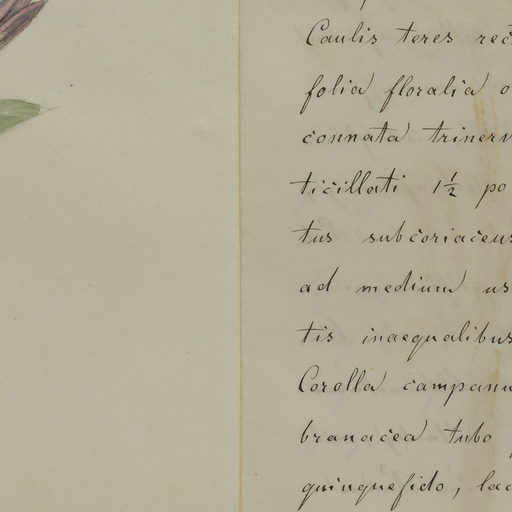 Caulis teres rec
folia floralia o
connata trinerv
ticillati 1½ po
tus subcoriaceus
ad medium us
tis inaequalibus
Corolla campanu
branacea tubo
quinquefido, lac